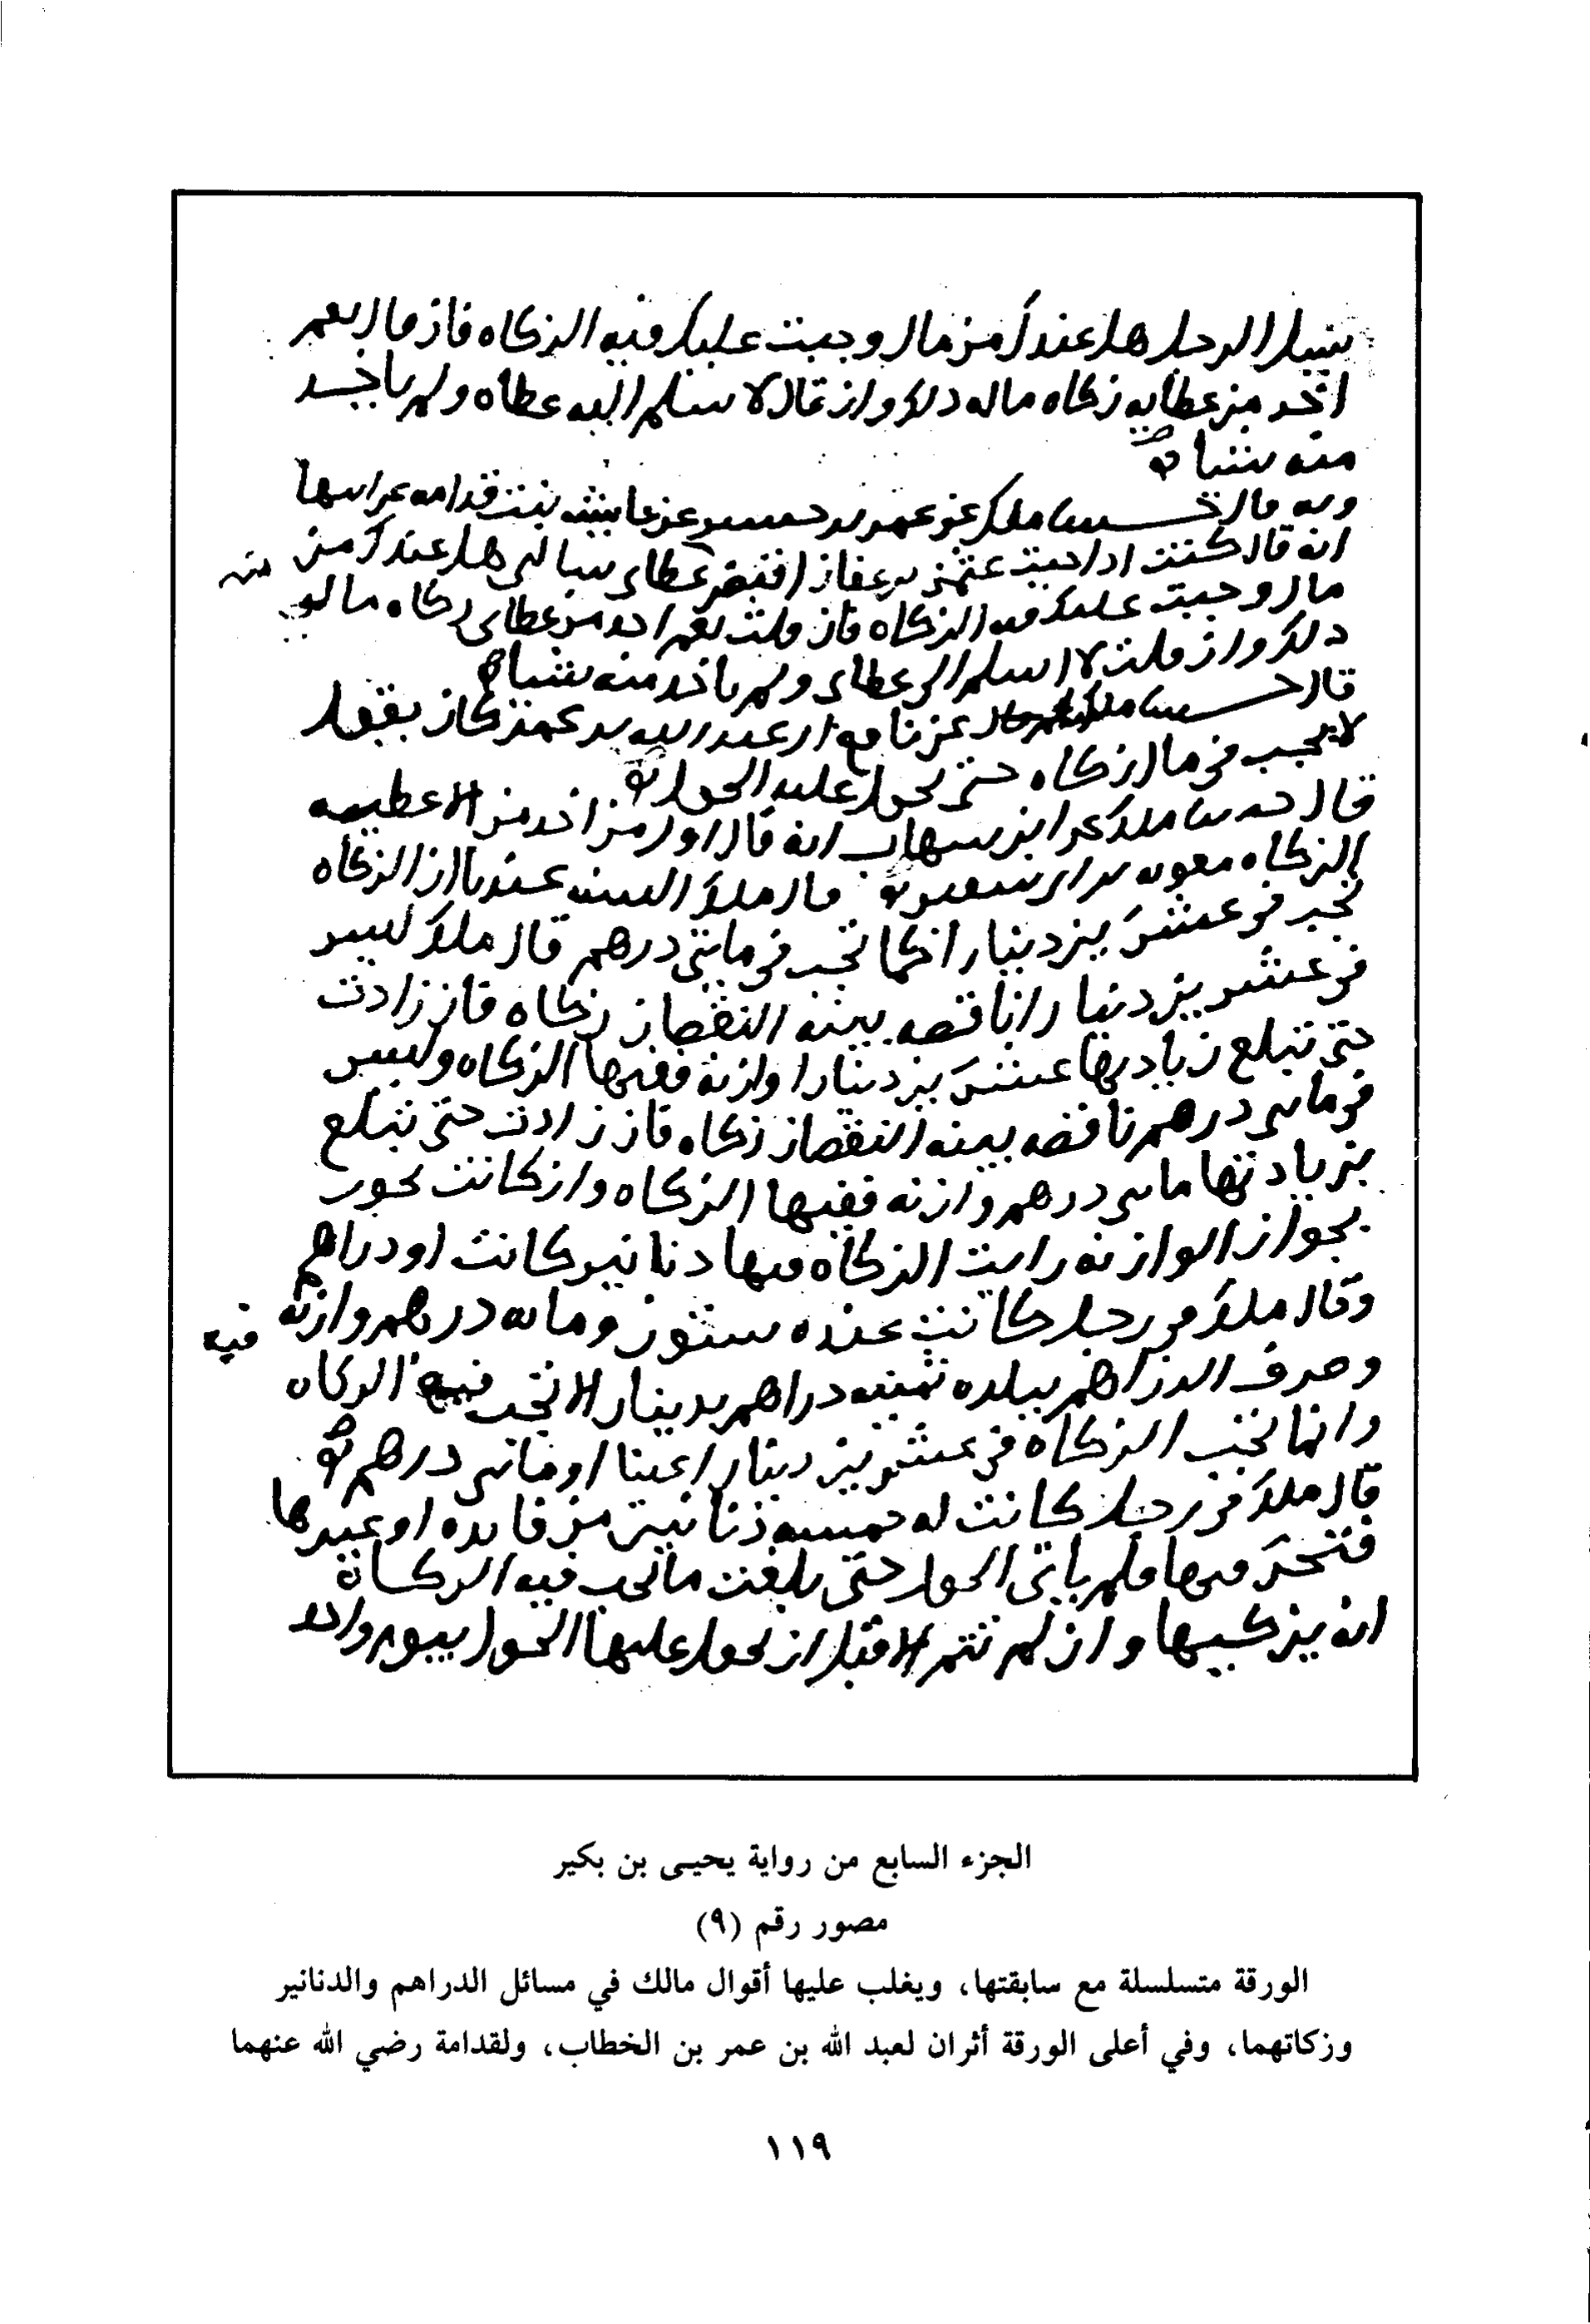 يسل الرجل هل عندك من مال وجبت عليك فيه الزكاه فان قال نعم
اخد من عطايه زكاه ماله دلك وان قال لا سلم اليه عطاه ولم ياخد
منه شيا
وبه قال حدثنا ملك عن عمر بن حسين عن عايشه بنت قدامه عن ابيها
انه قال كنت ادا جيت عثمن بن عفان اقبض عطاى سالنى هل عندك من
مال وجبت عليك فيه الزكاه فان قلت نعم اخد من عطاى زكاه مالى
دلك وان قلت لا اسلم الى عطاى ولم ياخد منه شيا
قال حدثنا ملك عن نافع ان عبد الله بن عمر كان يقول
لا يجب فى مال زكاه حتى يحول عليه الحول
قال حدثنا ملك عن ابن شهاب انه قال اول من اخد من الاعطيه
الزكاه معويه بن ابى سفين قال ملك السنه عندنا ان الزكاه
تجب فى عشرين دينارا كما تجب فى مايتى درهم قال ملك ليس
فى عشرين دينارا ناقصه بينه النقصان زكاه فان زادت
حتى تبلغ زيادتها عشرين دينارا وازنه ففيها الزكاه وليس
فى مايتى درهم ناقصه بينه النقصان زكاه فان زادت حتى تبلغ
بزيادتها مايتى درهم وازنه ففيها الزكاه وان كانت تجوز
بجواز الوازنه رايت الزكاه فيها دنانير كانت او دراهم
وقال ملك فى رجل كانت عنده ستون ومايه درهم وازنه
وصرف الدراهم ببلده ثمنيه دراهم بدينار لا تجب فيه الزكاه
وانما تجب الزكاه فى عشرين دينارا عينا او مايتى درهم
قال ملك فى رجل كانت له خمسه دنانير من فايده او غيرها
فتجر فيها فلم ياتى الحول حتى بلغت ما تجب فيه الزكاة
انه يزكيها وان لم تتم الا قبل ان يحول عليها الحول بيوم واحد
الجزء السابع من رواية يحيى بن بكير
مصور رقم (٩)
الورقة متسلسلة مع سابقتها، ويغلب عليها أقوال مالك في مسائل الدراهم والدنانير
وزكاتهما، وفي أعلى الورقة أثران لعبد الله بن عمر بن الخطاب، ولقدامة رضي الله عنهما
١١٩